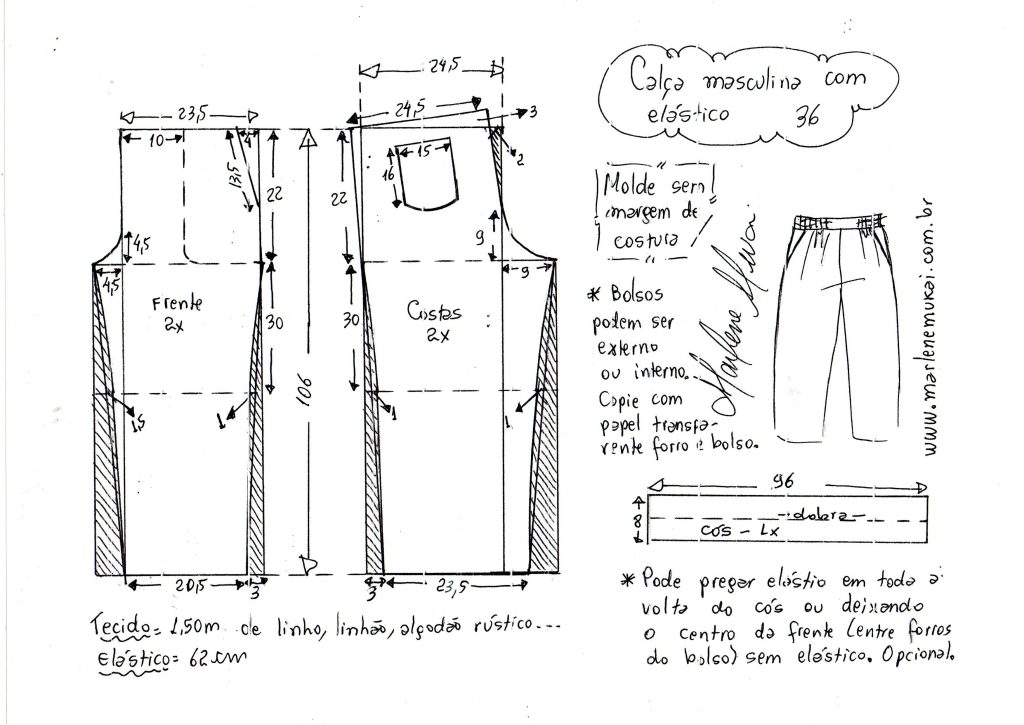 Calça masculina com
elástico 36
24,5
23,5
24,5
3
10
4
13,5
15
16
2
22
22
4,5
9
4,5
9
Frente
2x
Costas
2x
30
30
106
1,5
1
1
1
20,5
3
3
23,5
Molde sem
margem de
costura
Marlene Mukai
www.marlenemukai.com.br
* Bolsos
podem ser
externo
ou interno.
Copie com
papel transpa-
rente forro e bolso.
96
8
dobra
cós - 1x
Tecido = 1,50m de linho, linhão, algodão rústico...
Elástico = 62 cm
* Pode pregar elástio em toda a
volta do cós ou deixando
o centro da frente (entre forros
do bolso) sem elástico. Opcional.